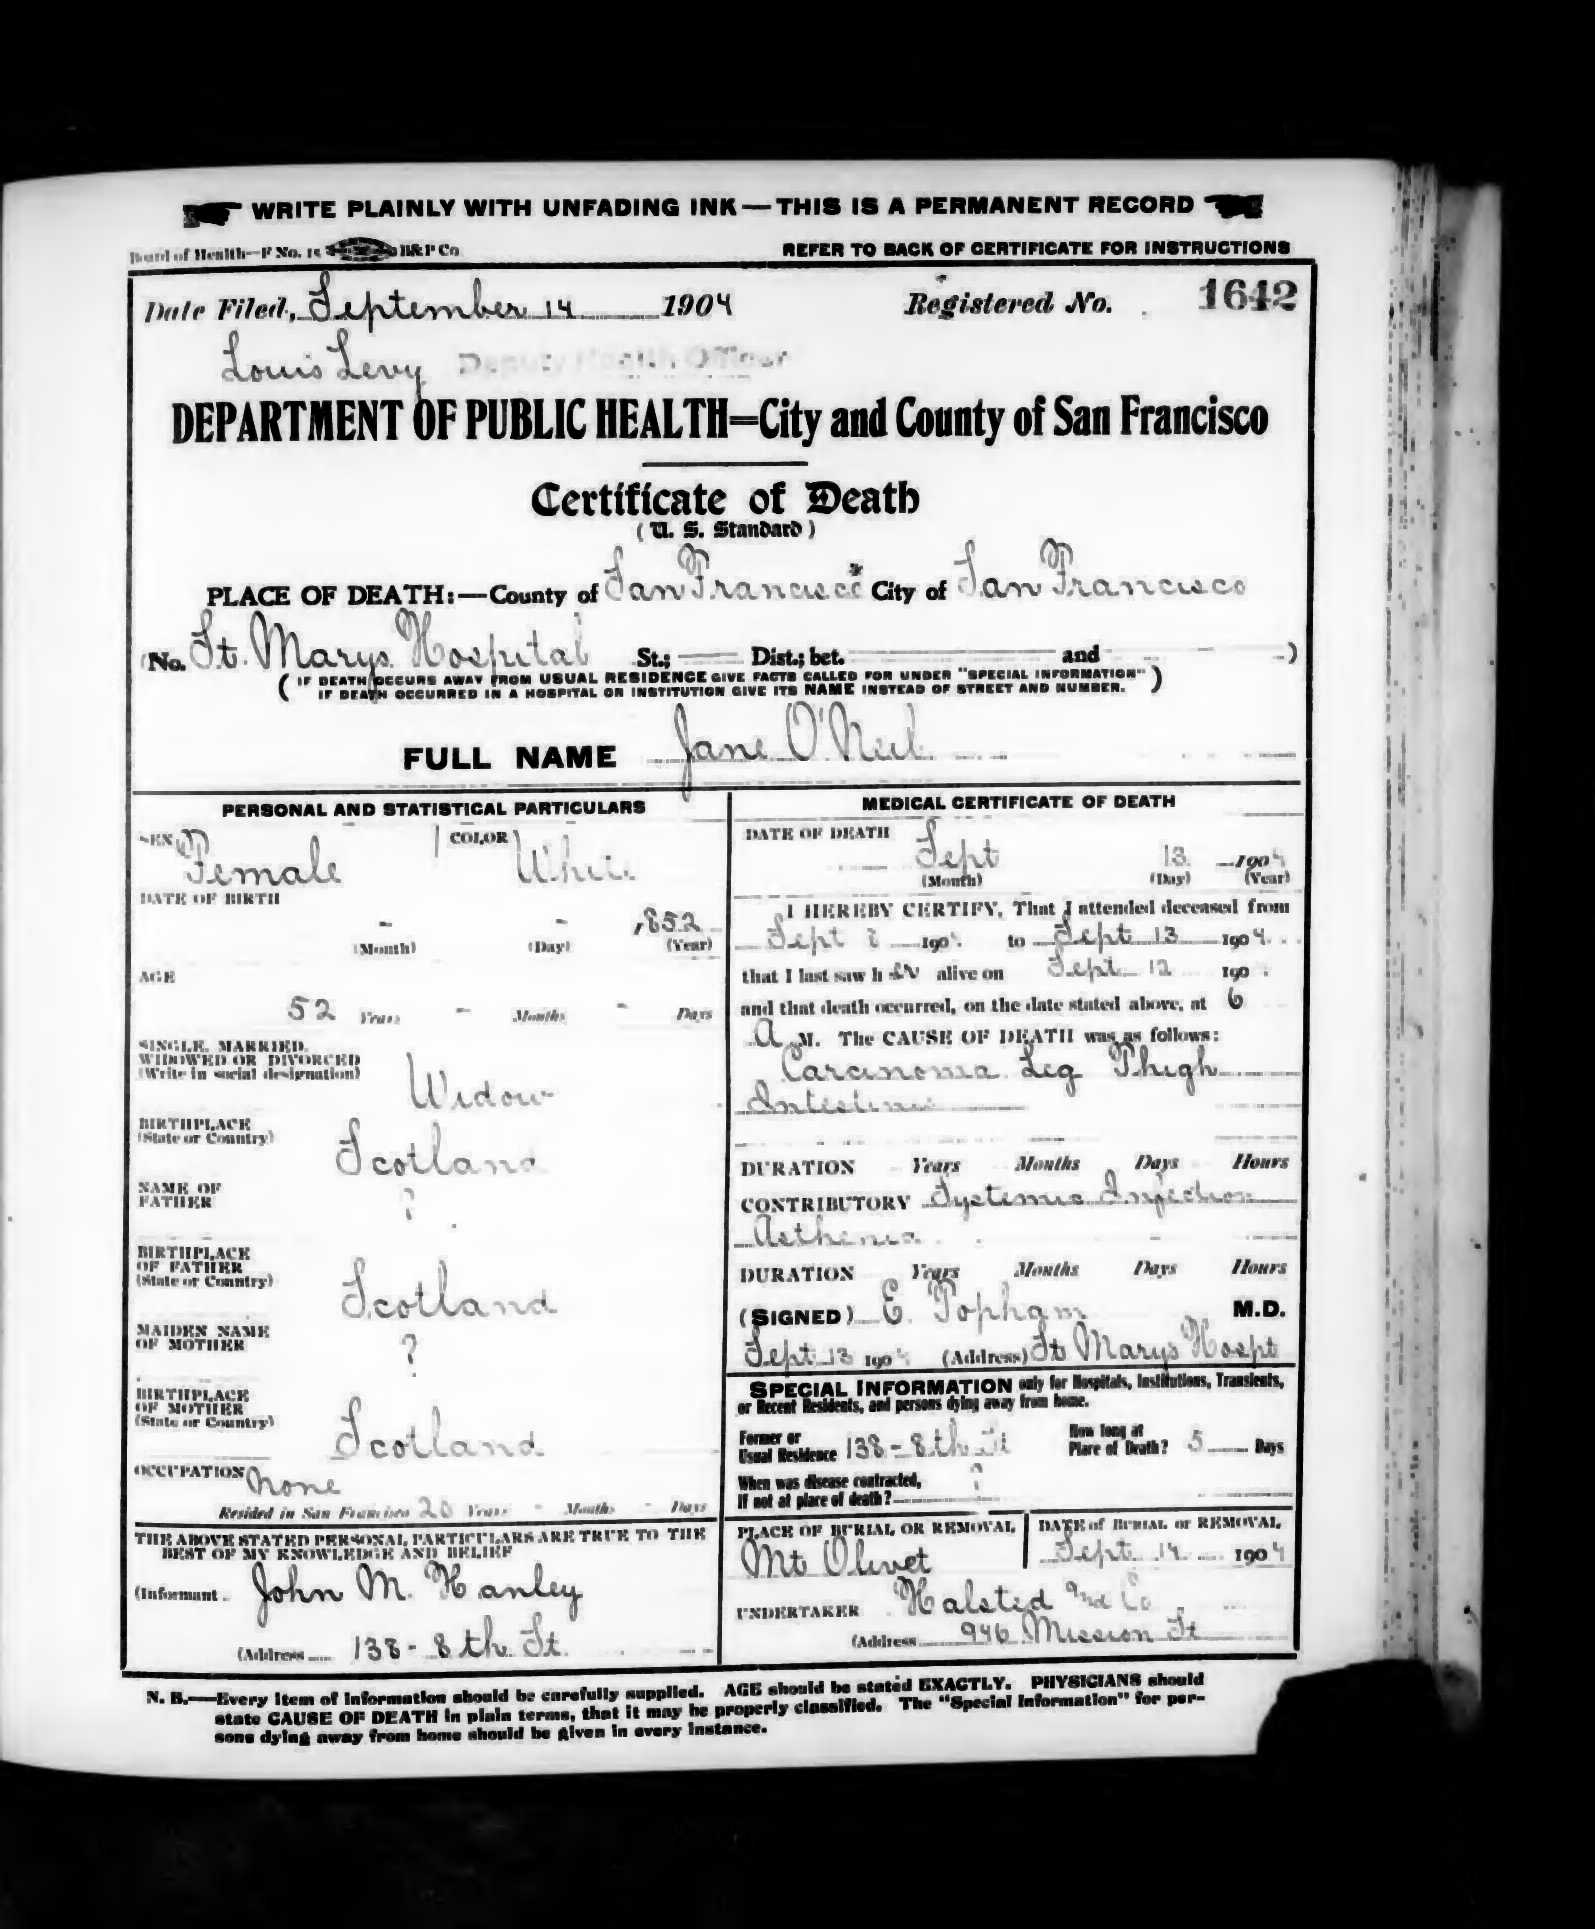 WRITE PLAINLY WITH UNFADING INK — THIS IS A PERMANENT RECORD
Board of Health—F No. 15 B&P Co
REFER TO BACK OF CERTIFICATE FOR INSTRUCTIONS
Date Filed, September 14 1904 Registered No. 1642
Louis Levy Deputy Health Officer
DEPARTMENT OF PUBLIC HEALTH=City and County of San Francisco
Certificate of Death
(U. S. Standard)
PLACE OF DEATH:—County of San Francisco City of San Francisco
(No. St. Marys Hospital St.; Dist.; bet. and )
( IF DEATH OCCURS AWAY FROM USUAL RESIDENCE GIVE FACTS CALLED FOR UNDER "SPECIAL INFORMATION" )
( IF DEATH OCCURRED IN A HOSPITAL OR INSTITUTION GIVE ITS NAME INSTEAD OF STREET AND NUMBER. )
FULL NAME Jane O'Neil
PERSONAL AND STATISTICAL PARTICULARS
SEX Female COLOR White
DATE OF BIRTH
- - 1852
(Month) (Day) (Year)
AGE
52 Years - Months - Days
SINGLE, MARRIED,
WIDOWED OR DIVORCED
(Write in social designation)
Widow
BIRTHPLACE
(State or Country)
Scotland
NAME OF
FATHER
?
BIRTHPLACE
OF FATHER
(State or Country)
Scotland
MAIDEN NAME
OF MOTHER
?
BIRTHPLACE
OF MOTHER
(State or Country)
Scotland
OCCUPATION None
Resided in San Francisco 20 Years - Months - Days
THE ABOVE STATED PERSONAL PARTICULARS ARE TRUE TO THE
BEST OF MY KNOWLEDGE AND BELIEF
(Informant John M. Hanley
(Address 138 - 8th St.
MEDICAL CERTIFICATE OF DEATH
DATE OF DEATH
Sept 13 1904
(Month) (Day) (Year)
I HEREBY CERTIFY, That I attended deceased from
Sept 8 190 to Sept 13 1904
that I last saw h er alive on Sept 12 190
and that death occurred, on the date stated above, at 6
A M. The CAUSE OF DEATH was as follows:
Carcinoma Leg Thigh
Intestines
DURATION Years Months Days Hours
CONTRIBUTORY Systemic Infection
Asthenia
DURATION Years Months Days Hours
(SIGNED) E. Popham M.D.
Sept 13 1904 (Address) St Marys Hospt
SPECIAL INFORMATION only for Hospitals, Institutions, Transients,
or Recent Residents, and persons dying away from home.
Former or
Usual Residence 138 - 8th St
How long at
Place of Death? 5 Days
When was disease contracted,
If not at place of death? ?
PLACE OF BURIAL OR REMOVAL
Mt Olivet
DATE of BURIAL or REMOVAL
Sept 14 1904
UNDERTAKER Halsted and Co
(Address 946 Mission St
N. B.—Every item of information should be carefully supplied. AGE should be stated EXACTLY. PHYSICIANS should
state CAUSE OF DEATH in plain terms, that it may be properly classified. The "Special Information" for per-
sons dying away from home should be given in every instance.